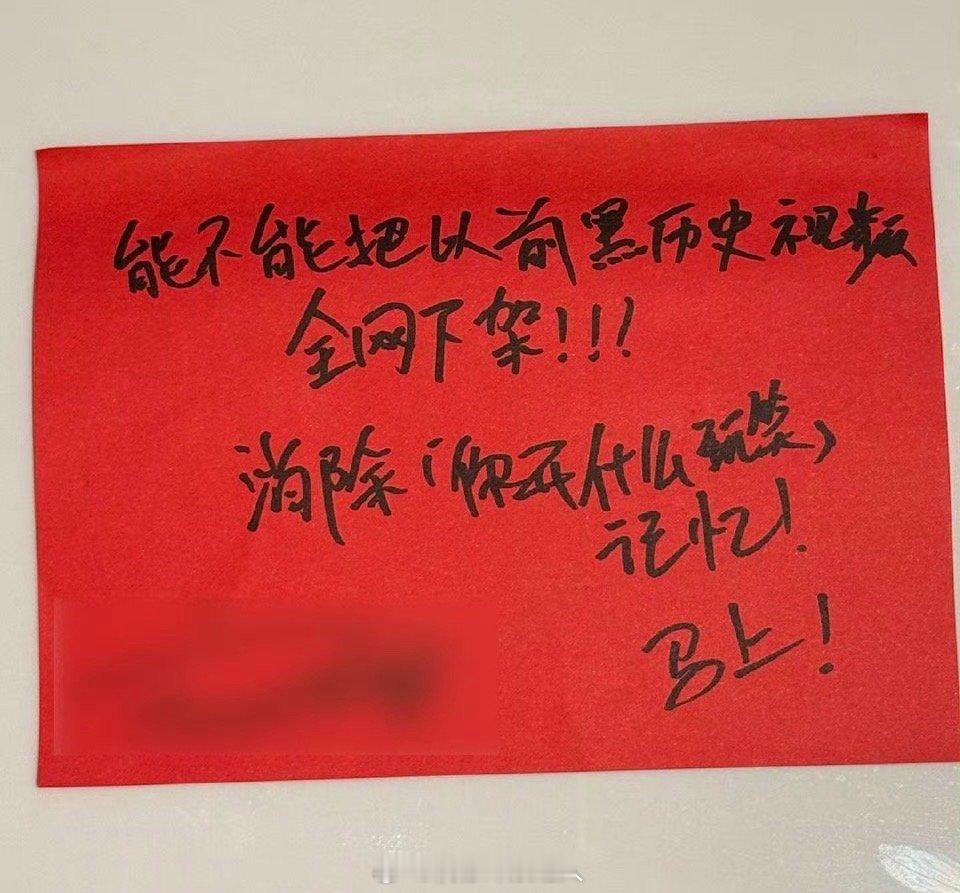 能不能把以前黑历史视频
全网下架!!!
消除“你开什么玩笑”
记忆!
马上!